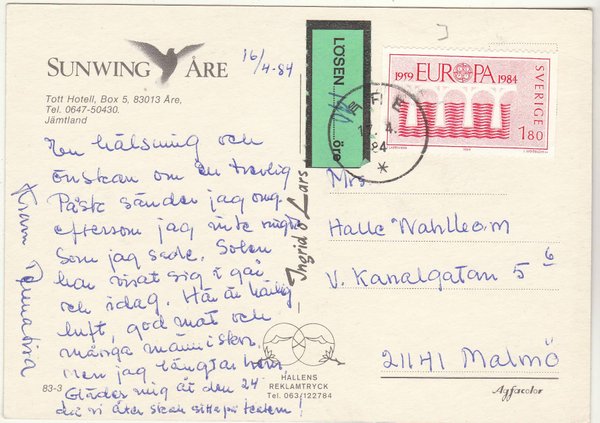 SUNWING ÅRE
Tott Hotell, Box 5, 83013 Åre,
Tel. 0647-50430.
Jämtland
16/4-84
En hälsning och
önskan om en trevlig
Påsk sänder jag
eftersom jag inte ringt
som jag sade. Solen
har visat sig i går
och idag. Här är härlig
luft, god mat och
många människor,
men jag längtar hem.
Gläder mig åt den 24
då vi åter skall sitta på teatern!
Kram
83-3
LÖSEN
öre
Ingrid o Lars
HALLENS
REKLAMTRYCK
Tel. 063/122784
1959 EUROPA 1984
SVERIGE
1.80
ÅRE
17.4.
84
Mrs
Halle Wahlleom
V. Kanalgatan 5 6
21141 Malmö
Agfacolor